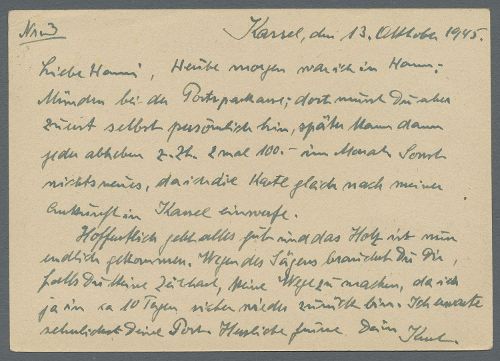 Nr. 3
Kassel, den 13. Oktober 1945.
Liebe Hanni, Heute morgen war ich in Hann.-
Münden bei der Postsparkasse; dort musst Du aber
zuerst selbst persönlich hin, später kann dann
jeder abheben z. Zt. 2 mal 100.- im Monat. Sonst
nichts neues, da ich die Karte gleich nach meiner
Ankunft in Kassel einwerfe.
Hoffentlich geht alles gut und das Holz ist nun
endlich gekommen. Wegen des Sägens brauchst Du Dir,
falls Du keine Zeit hast, keine Wege zu machen, da ich
ja in ca 10 Tagen sicher wieder zurück bin. Ich erwarte
sehnlichst Deine Post. Herzliche Grüsse Dein